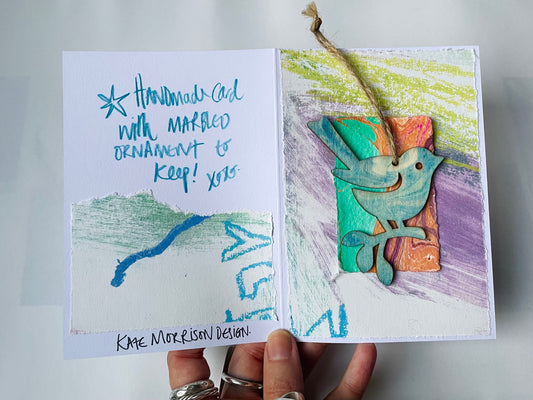 Handmade card
with MARBLED
ORNAMENT to
keep! xoxo.
KATE MORRISON DESIGN.